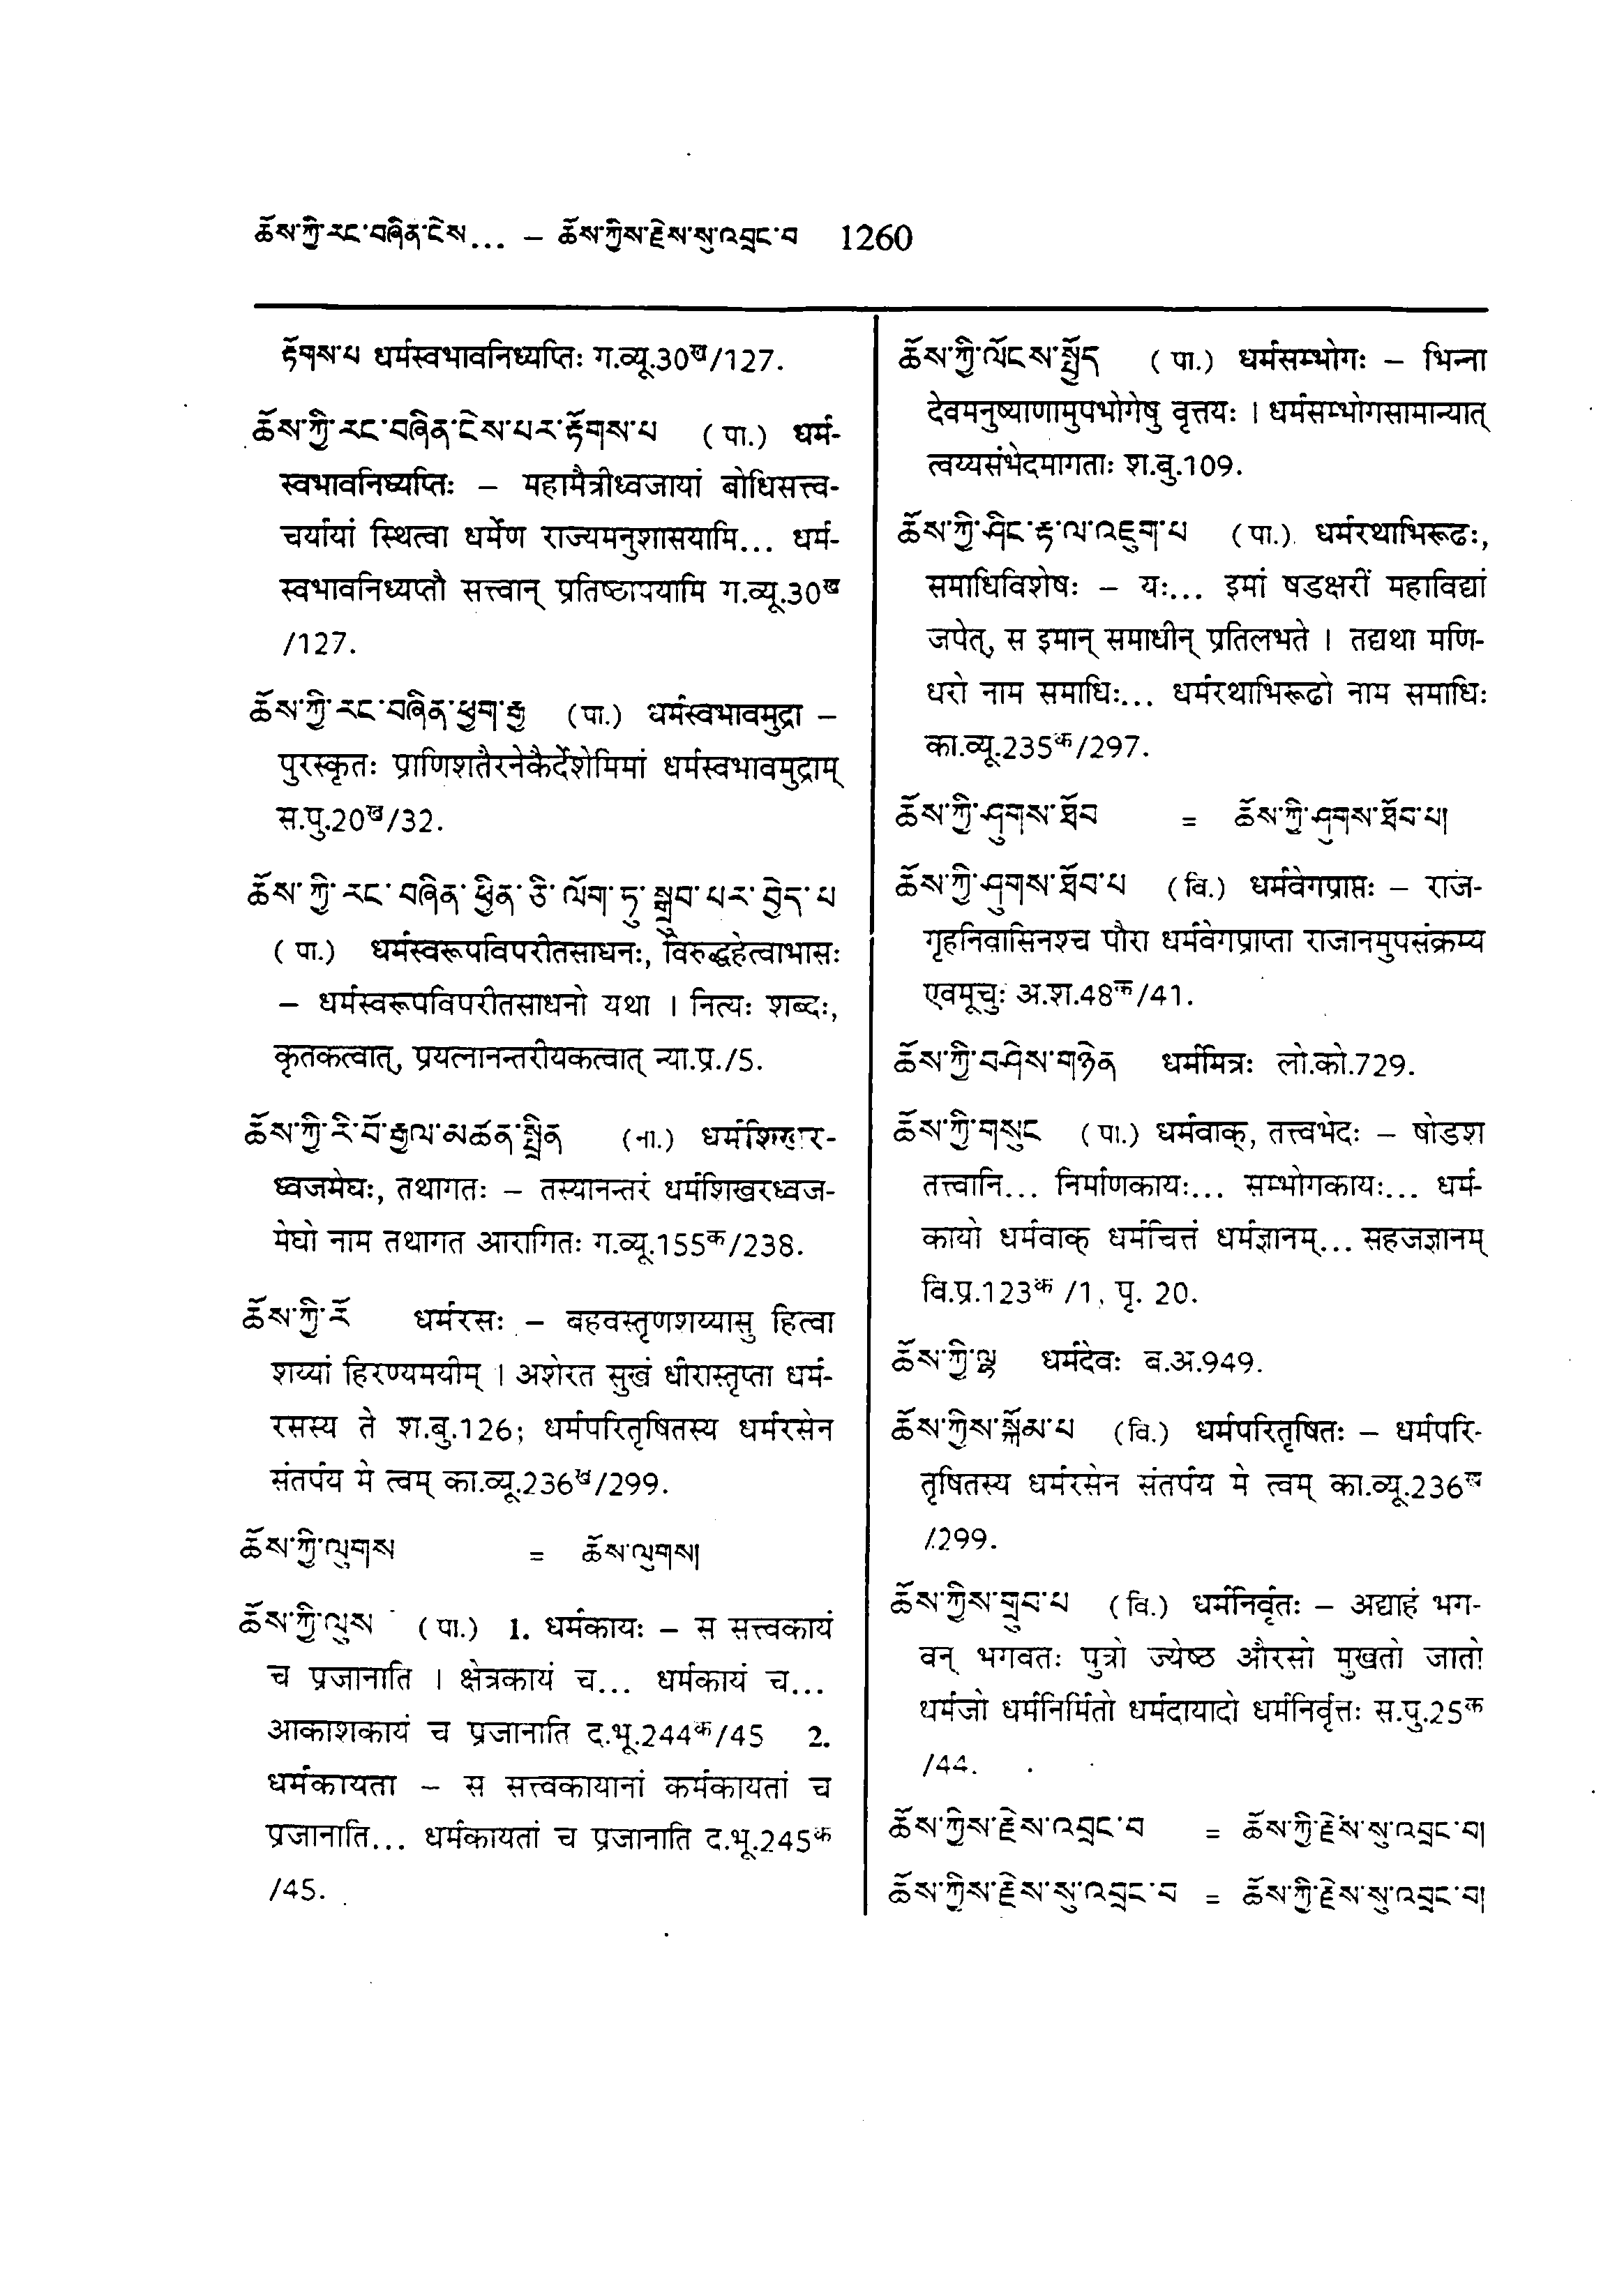 ཆོས་ཀྱི་རང་བཞིན་ངེས... – ཆོས་ཀྱིས་རྗེས་སུ་འབྲང་བ 1260
རྟོགས་པ धर्मस्वभावनिध्यप्तिः ग.व्यू.30ख/127.
ཆོས་ཀྱི་རང་བཞིན་ངེས་པར་རྟོགས་པ (पा.) धर्म-
स्वभावनिध्यप्तिः – महामैत्रीध्वजायां बोधिसत्त्व-
चर्यायां स्थित्वा धर्मेण राज्यमनुशासयामि... धर्म-
स्वभावनिध्यप्तौ सत्त्वान् प्रतिष्ठापयामि ग.व्यू.30ख
/127.
ཆོས་ཀྱི་རང་བཞིན་ཕྱག་རྒྱ (पा.) धर्मस्वभावमुद्रा –
पुरस्कृतः प्राणिशतैरनेकैर्देशेमिमां धर्मस्वभावमुद्राम्
स.पु.20ख/32.
ཆོས་ཀྱི་རང་བཞིན་ཕྱིན་ཅི་ལོག་ཏུ་སྒྲུབ་པར་བྱེད་པ
(पा.) धर्मस्वरूपविपरीतसाधनः, विरुद्धहेत्वाभासः
– धर्मस्वरूपविपरीतसाधनो यथा । नित्यः शब्दः,
कृतकत्वात्, प्रयत्नानन्तरीयकत्वात् न्या.प्र./5.
ཆོས་ཀྱི་རི་བོ་རྒྱལ་མཚན་སྤྲིན (ना.) धर्मशिखर-
ध्वजमेघः, तथागतः – तस्यानन्तरं धर्मशिखरध्वज-
मेघो नाम तथागत आरागितः ग.व्यू.155क/238.
ཆོས་ཀྱི་རོ धर्मरसः – बहवस्तृणशय्यासु हित्वा
शय्यां हिरण्यमयीम् । अशेरत सुखं धीरास्तृप्ता धर्म-
रसस्य ते श.बु.126; धर्मपरितृषितस्य धर्मरसेन
संतर्पय मे त्वम् का.व्यू.236ख/299.
ཆོས་ཀྱི་ལུགས = ཆོས་ལུགས།
ཆོས་ཀྱི་ལུས (पा.) 1. धर्मकायः – स सत्त्वकायं
च प्रजानाति । क्षेत्रकायं च... धर्मकायं च...
आकाशकायं च प्रजानाति द.भू.244क/45 2.
धर्मकायता – स सत्त्वकायानां कर्मकायतां च
प्रजानाति... धर्मकायतां च प्रजानाति द.भू.245क
/45.
ཆོས་ཀྱི་ལོངས་སྤྱོད (पा.) धर्मसम्भोगः – भिन्ना
देवमनुष्याणामुपभोगेषु वृत्तयः । धर्मसम्भोगसामान्यात्
त्वय्यसंभेदमागताः श.बु.109.
ཆོས་ཀྱི་ཤིང་རྟ་ལ་འཇུག་པ (पा.) धर्मरथाभिरूढः,
समाधिविशेषः – यः... इमां षडक्षरीं महाविद्यां
जपेत्, स इमान् समाधीन् प्रतिलभते । तद्यथा मणि-
धरो नाम समाधिः... धर्मरथाभिरूढो नाम समाधिः
का.व्यू.235क/297.
ཆོས་ཀྱི་ཤུགས་ཐོབ = ཆོས་ཀྱི་ཤུགས་ཐོབ་པ།
ཆོས་ཀྱི་ཤུགས་ཐོབ་པ (वि.) धर्मवेगप्राप्तः – राज-
गृहनिवासिनश्च पौरा धर्मवेगप्राप्ता राजानमुपसंक्रम्य
एवमूचुः अ.श.48क/41.
ཆོས་ཀྱི་བཤེས་གཉེན धर्ममित्रः लो.को.729.
ཆོས་ཀྱི་གསུང (पा.) धर्मवाक्, तत्त्वभेदः – षोडश
तत्त्वानि... निर्माणकायः... सम्भोगकायः... धर्म-
कायो धर्मवाक् धर्मचित्तं धर्मज्ञानम्... सहजज्ञानम्
वि.प्र.123क /1, पृ. 20.
ཆོས་ཀྱི་ལྷ धर्मदेवः ब.अ.949.
ཆོས་ཀྱིས་སྐོམ་པ (वि.) धर्मपरितृषितः – धर्मपरि-
तृषितस्य धर्मरसेन संतर्पय मे त्वम् का.व्यू.236ख
/299.
ཆོས་ཀྱིས་གྲུབ་པ (वि.) धर्मनिर्वृतः – अद्याहं भग-
वन् भगवतः पुत्रो ज्येष्ठ औरसो मुखतो जातो
धर्मजो धर्मनिर्मितो धर्मदायादो धर्मनिर्वृत्तः स.पु.25क
/44.
ཆོས་ཀྱིས་རྗེས་འབྲང་བ = ཆོས་ཀྱི་རྗེས་སུ་འབྲང་བ།
ཆོས་ཀྱིས་རྗེས་སུ་འབྲང་བ = ཆོས་ཀྱི་རྗེས་སུ་འབྲང་བ།